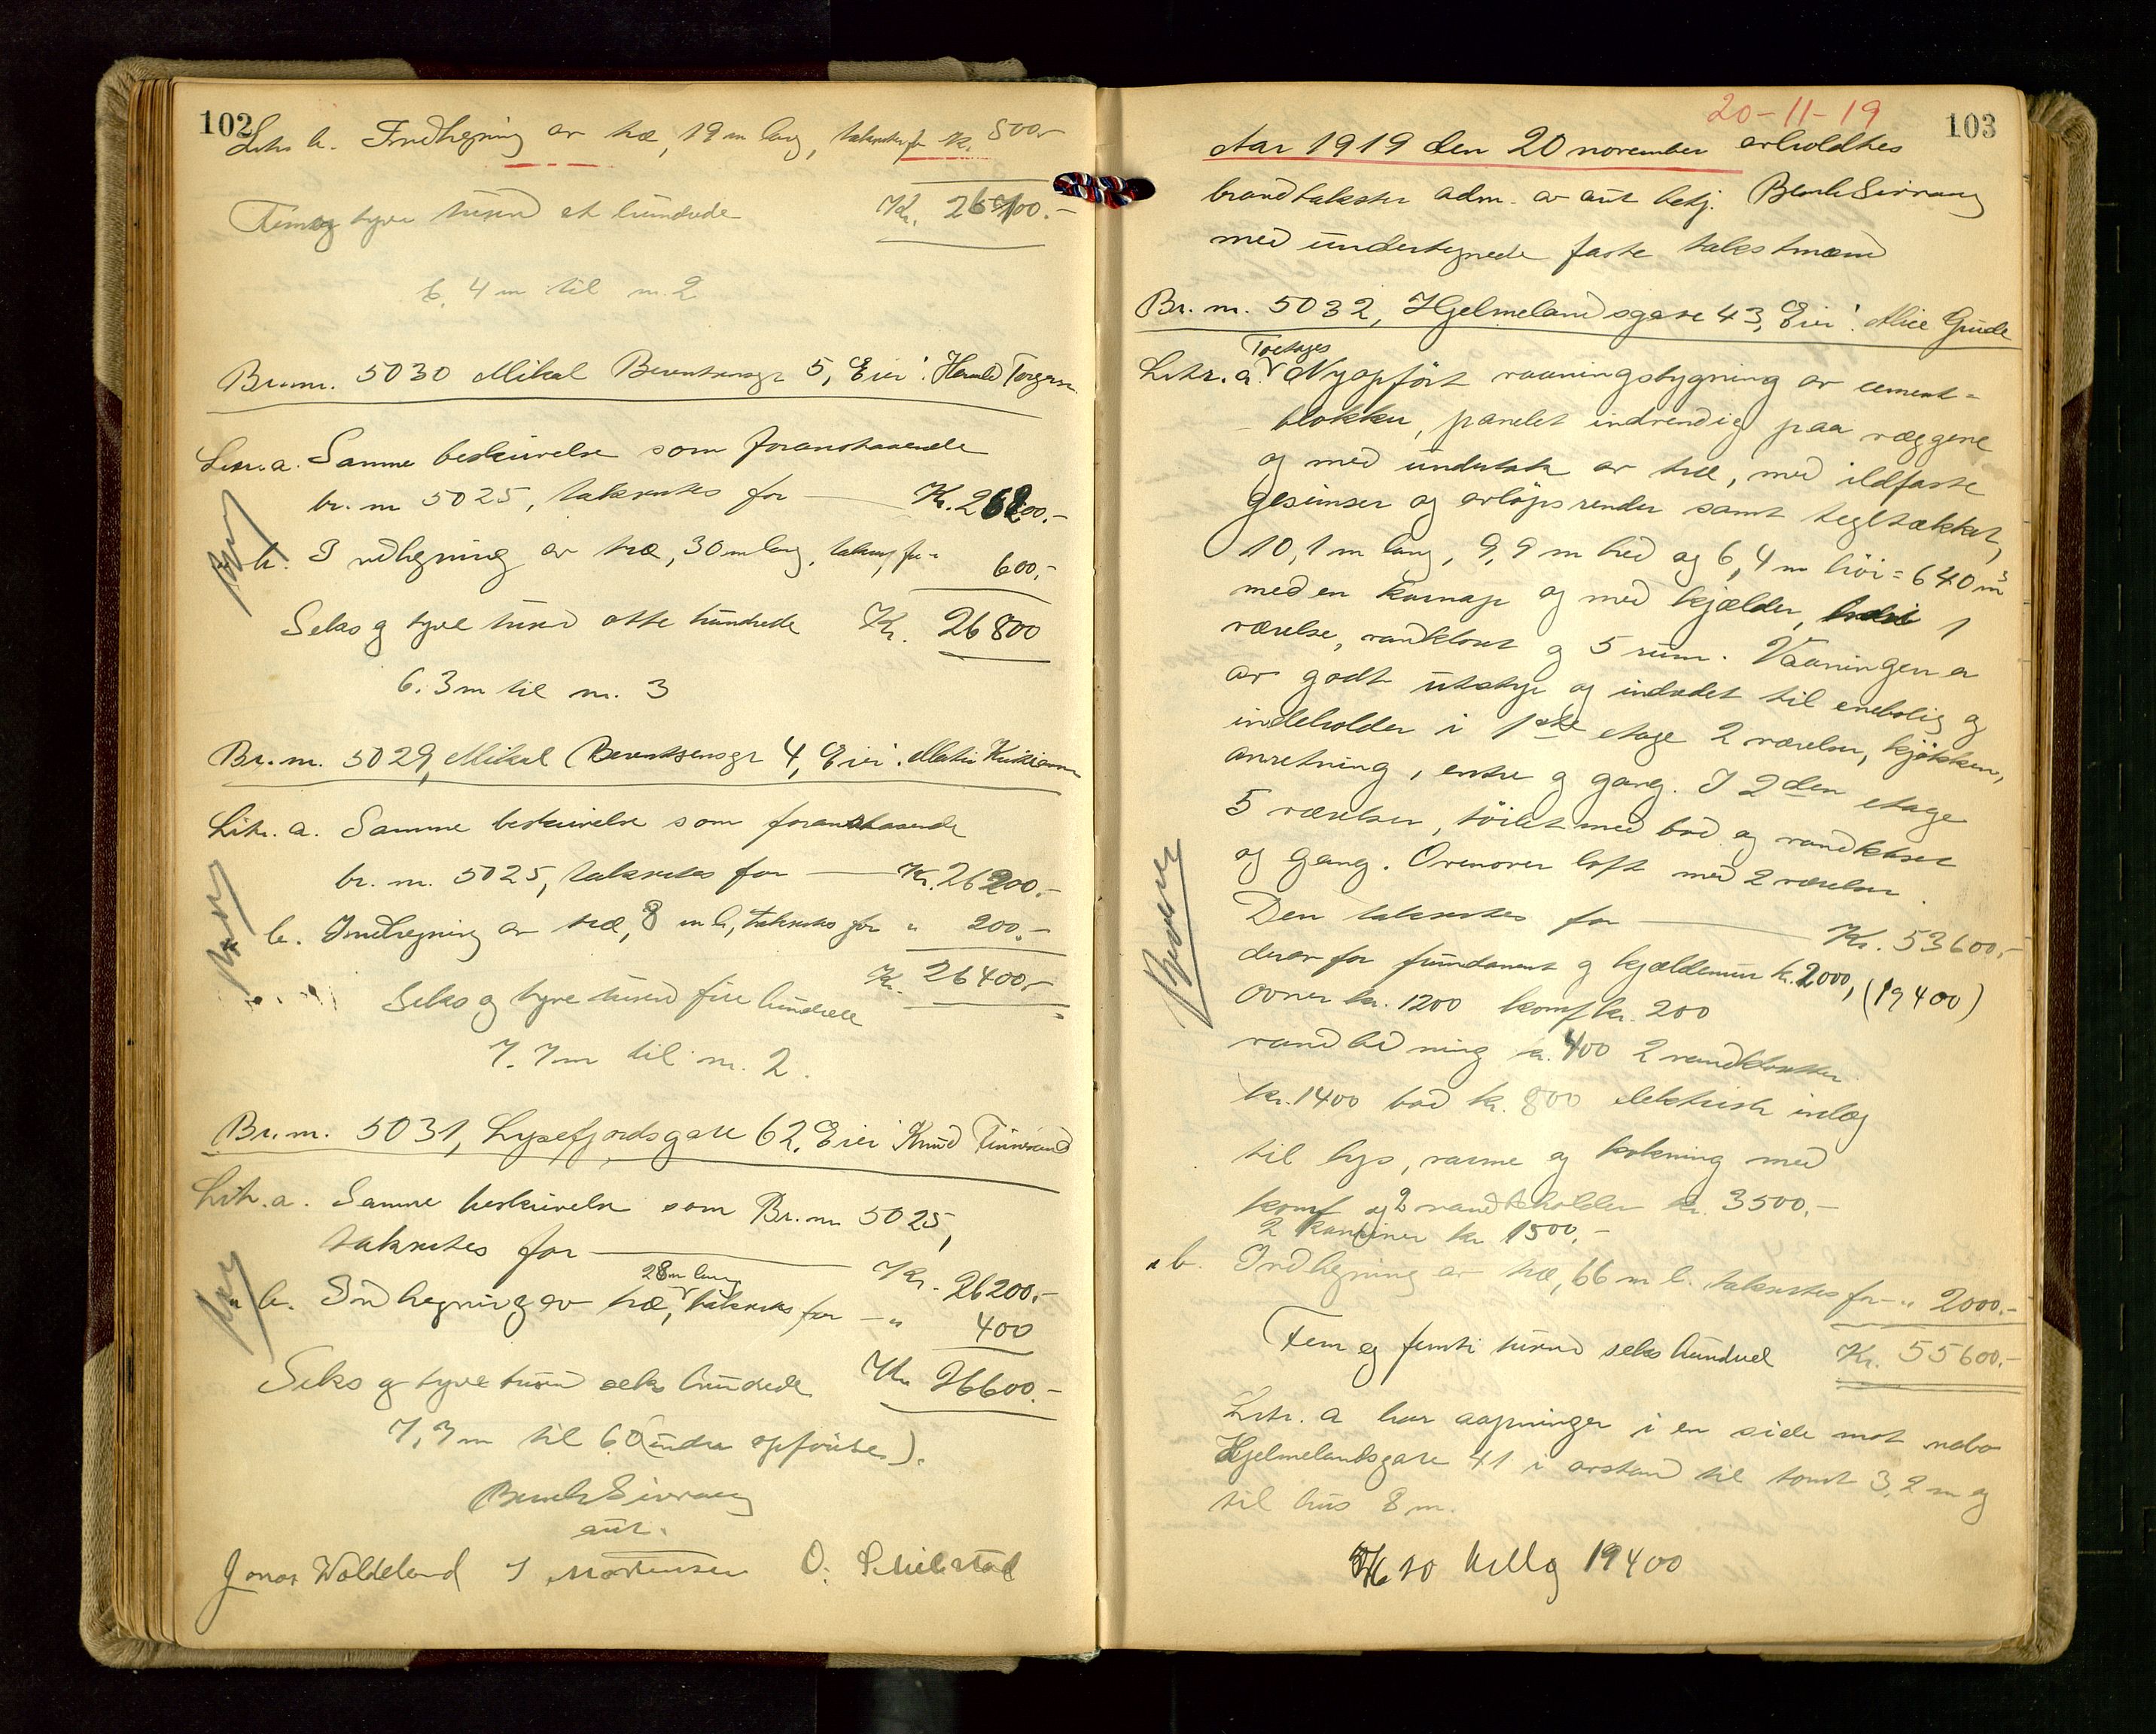 102
Litr b. Indhegning av træ, 19 m lang, takseres for kr. 500,-
Fem og tyve tusind et hundrede Kr. 26100.-
6,4 m til nr. 2
Br.nr. 5030 Mikal Berentsensgt 5, Eier: Harald Torgersen
Litr. a. Samme beskrivelse som foranstaaende
br. nr 5025, taksertes for Kr. 26200.-
b. Indhegning av træ, 30 m lang, takseres for " 600.-
Seks og tyve tusind otte hundrede Kr. 26800
6.3 m til nr. 3
Br. nr. 5029, Mikal Berentsensgt 4, Eier: Martin Kristiansen
Litr. a. Samme beskrivelse som foranstaaende
br. nr. 5025, taksertes for Kr. 26200.-
b. Indhegning av træ, 8 m l., taksertes for " 200.-
Kr. 26400.-
Seks og tyve tusind fire hundrede
7.7 m til nr. 2.
Br. nr. 5031, Lysefjordsgate 62, Eier Knud Finnesand
Litr. a. Samme beskrivelse som Br. nr 5025,
taksertes for Kr. 26200.-
28 m lang
" b. Indhegning av træ, taksertes for " 400
Seks og tyve tusind seks hundrede Kr 26600.-
7,7 m til 60 (under opförelse).
Bendt Sivvaag
aut.
Jonas Woldeland I Mortensen O. Skielstad
20-11-19
103
Aar 1919 den 20 november avholdtes
brandtakster adm. av aut betj. Bendt Sivvaag
med undertegnede faste takstmænd
Br. nr. 5032, Hjelmelandsgate 43, Eier: Alice Gude
Toetages
Litr. a. Nyopfört vaaningsbygning av cement-
blokker, panelet indvendig paa væggene
og med undertak av træ, med ildfaste
gesimser og avløpsrender samt tegltækket,
10,1 m lang, 9,9 m bred og 6,4 m höi = 640 m³
med en karnap og med kjælder, 1
værelse, vandkloset og 5 rum. Vaaningen er
av godt utstyr og indredet til enebolig og
indeholder i 1ste etage 2 værelser, kjökken,
anretning, entre og gang. I 2den etage
5 værelser, töilet med bad og vandkloset
og gang. Ovenover loft med 2 værelser.
Den taksertes for Kr. 53600.-
derav for fundament og kjældermur kr. 2000, (19400)
ovner kr. 1200 komf kr. 200
vandledning kr. 400 2 vandklosetter
kr. 1400 bad kr. 800 elektrisk inlæg
til lys, varme og kokning med
komf og 2 vandbeholder kr. 3500.-
2 kaminer kr 1500.-
" b. Indhegning av træ, 66 m l. taksertes for " 2000.-
Fem og femti tusind seks hundred Kr. 55600.-
Litr. a har aapninger i en side mot nabo
Hjelmelandsgate 41 i avstand til tomt 3,2 m og
til hus 8 m.
19400